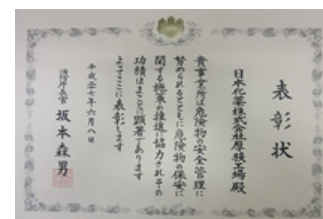 表彰状
日本化薬株式会社厚狭工場殿
貴事業所は危険物の安全管理に
努められるとともに危険物の保安に
関する施策の推進に協力されその
功績はまことに顕著であります
よってここに表彰します
平成二十七年六月八日
消防庁長官 坂本森男